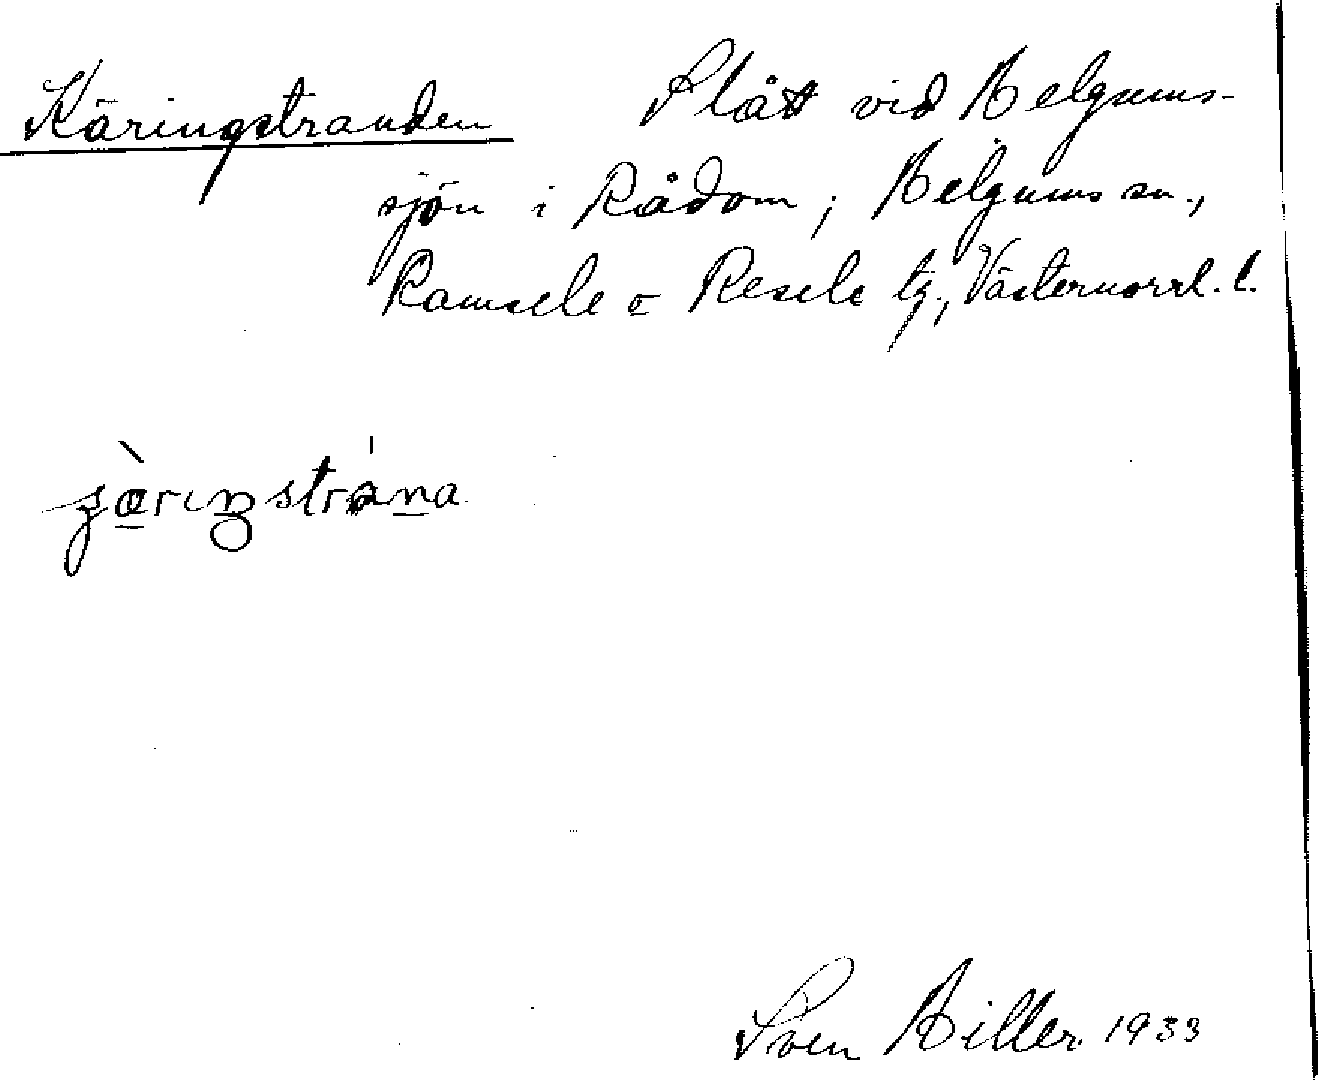 Käringstranden Slått vid Helgums-
sjön i Rådom, Helgums sn.,
Ramsele o Resele tg., Västernorrl. l.
Sven Hiller 1933